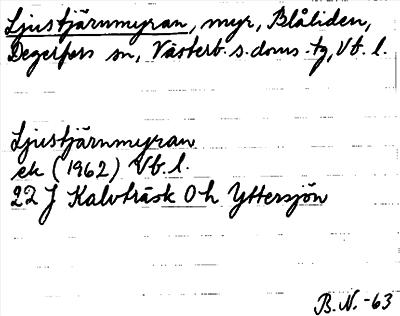 Ljustjärnmyran, myr, Blåliden,
Degerfors sn, Västerb. s. doms. tg, Vb. l.
Ljustjärnmyran
ek (1962) Vb. l.
22 J Kalvträsk 0 h Yttersjön
B.N. -63